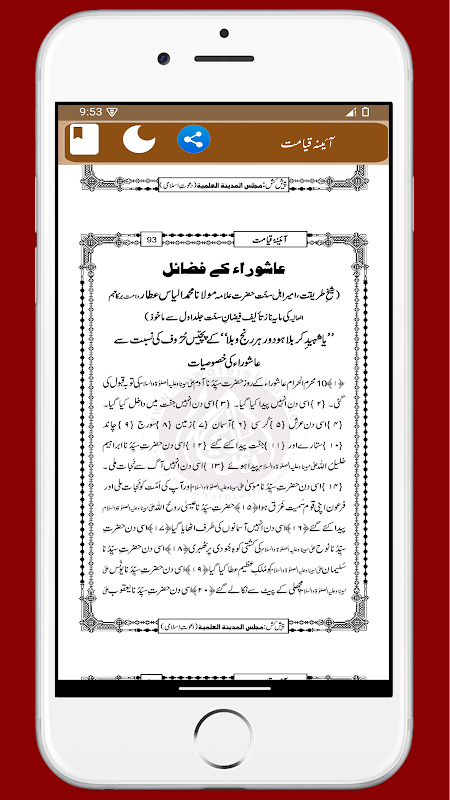 9:53
آئینہ قیامت
پیش کش: مجلس المدینۃ العلمیۃ (دعوت اسلامی)
آئینۂ قیامت
93
عاشوراء کے فضائل
(شیخ طریقت، امیر اہل سنّت حضرت علامہ مولانا محمد الیاس عطار دامت برکاتہم
العالیہ کی مایہ ناز تالیف فیضانِ سنّت جلد اول سے ماخوذ)
”یا شہیدِ کربلا ہو دور ہر رنج و بلا“ کے پچیس حُرُوف کی نسبت سے
عاشوراء کی خصوصیات
﴿۱﴾ 10 محرم الحرام عاشوراء کے روز حضرت سیّدُنا آدم علیٰ نبینا وعلیہ الصلوٰۃ والسلام کی توبہ قبول کی
گئی۔ {۲} اسی دن انہیں پیدا کیا گیا۔ {۳} اسی دن انہیں جنت میں داخل کیا گیا۔
{۴} اسی دن عرش {۵} کرسی {۶} آسمان {۷} زمین {۸} سورج {۹} چاند
{۱۰} ستارے اور {۱۱} جنت پیدا کئے گئے {۱۲} اسی دن حضرتِ سیّدُنا ابراہیم
خلیلُ اللہ علیٰ نبینا وعلیہ الصلوٰۃ والسلام پیدا ہوئے {۱۳} اسی دن انہیں آگ سے نجات ملی۔
{۱۴} اسی دن حضرت سیّدُنا موسیٰ علیٰ نبینا وعلیہ الصلوٰۃ والسلام اور آپ کی اُمّت کو نجات ملی اور
فرعون اپنی قوم سمیت غرق ہوا ﴿۱۵﴾ حضرت سیّدُنا عیسیٰ روحُ اللہ علیٰ نبینا وعلیہ الصلوٰۃ والسلام
پیدا کئے گئے ﴿۱۶﴾ اسی دن انہیں آسمانوں کی طرف اٹھایا گیا ﴿۱۷﴾ اسی دن حضرتِ
سیّدُنا نوح علیٰ نبینا وعلیہ الصلوٰۃ والسلام کی کشتی کوہِ جودی پر ٹھہری ﴿۱۸﴾ اسی دن حضرت سیّدُنا
سُلیمان علیٰ نبینا وعلیہ الصلوٰۃ والسلام کو مُلکِ عظیم عطا کیا گیا ﴿۱۹﴾ اسی دن حضرت سیّدُنا یونُس علیٰ
نبینا وعلیہ الصلوٰۃ والسلام مچھلی کے پیٹ سے نکالے گئے ﴿۲۰﴾ اسی دن حضرت سیّدُنا یعقوب علیٰ
پیش کش: مجلس المدینۃ العلمیۃ (دعوت اسلامی)